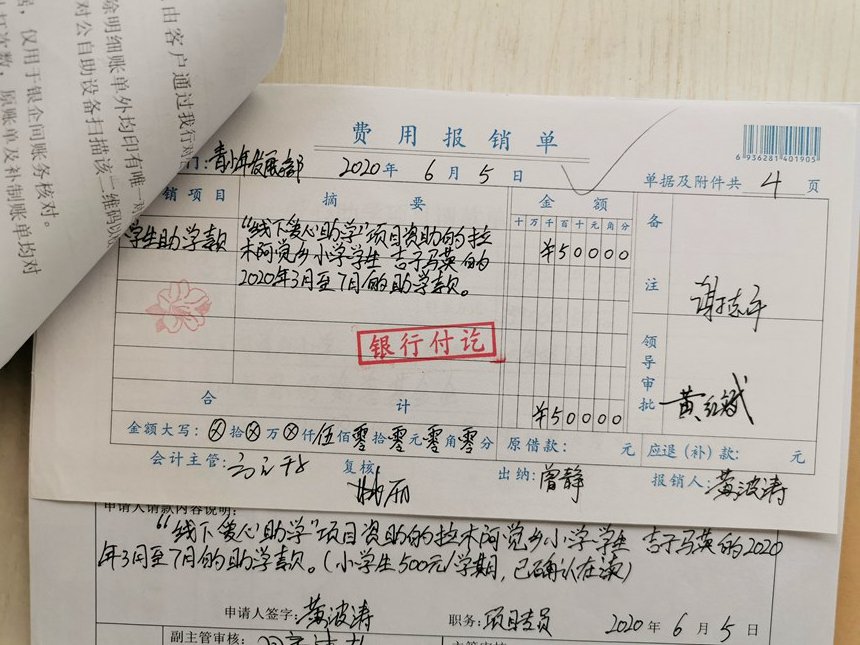 由客户通过我行对
除明细账单外均印有唯一
对公自助设备扫描该二维码以
仅用于银企间账务核对。
次数，原账单及补制账单均对
费用报销单
门：青少年发展部 2020年 6月5日
6 936281 401905
单据及附件共 4 页
销项目 摘要 金额 备注
十万千百十元角分
学生助学款 “线下爱心助学”项目资助的拉
木阿觉乡小学学生 吉子马英的
2020年3月至7月的助学款。
¥50000
银行付讫
领导审批 黄红斌
合计 ¥50000
金额大写：⊗拾⊗万⊗仟伍佰零拾零元零角零分 原借款： 元 应退（补）款： 元
会计主管： 复核 出纳：曾静 报销人：黄波涛
申请人请款内容说明：
“线下爱心助学”项目资助的拉木阿觉乡小学学生 吉子马英的2020
年3月至7月的助学款。（小学生500元/学期，已确认在读）
申请人签字：黄波涛 职务：项目专员 2020年6月5日
副主管审核：